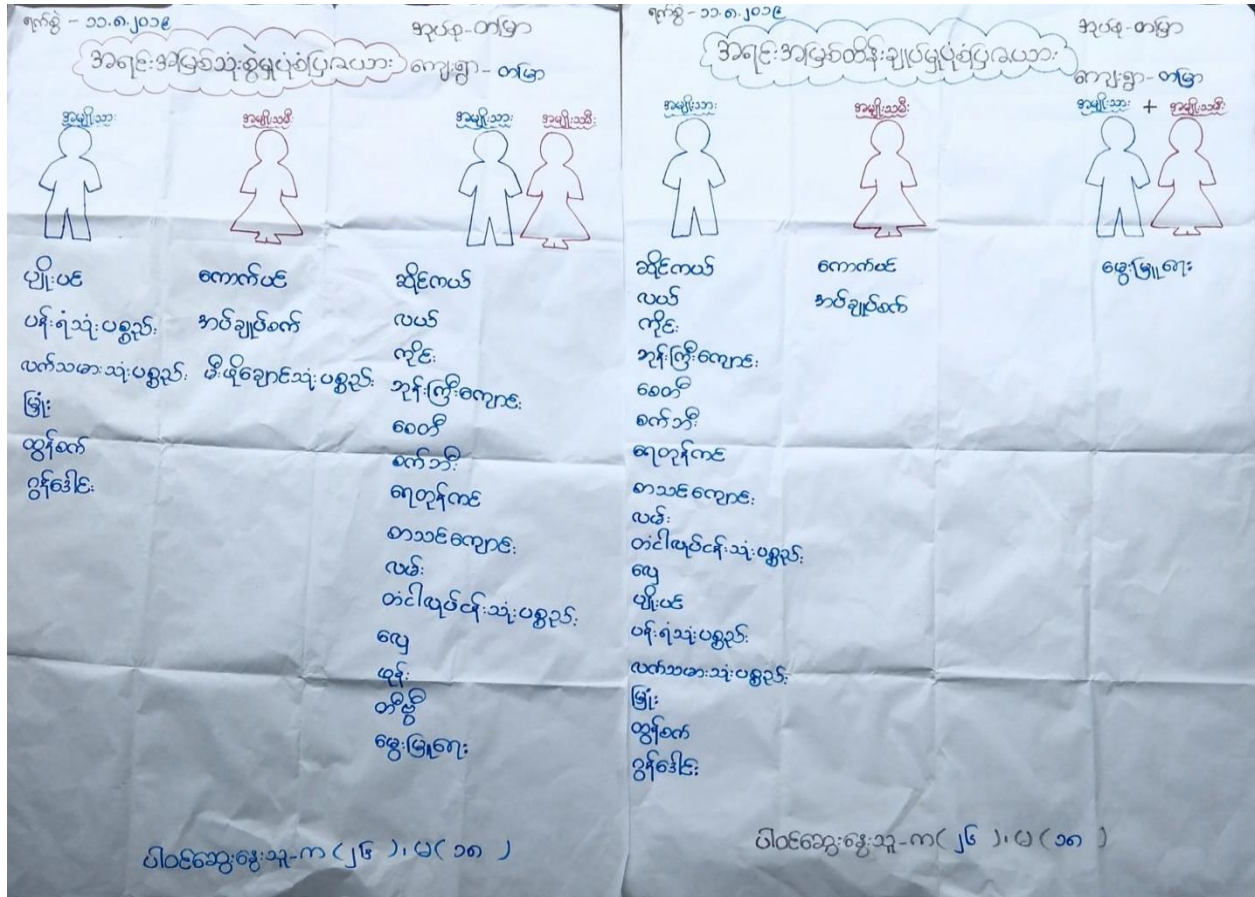 ရက်စွဲ - ၁၁.၈.၂၀၁၉
အုပ်စု-တမြာ
အရင်းအမြစ်သုံးစွဲမှုပုံစံပြဇယား
ကျေးရွာ-တမြာ
အမျိုးသား
အမျိုးသမီး
အမျိုးသား အမျိုးသမီး
ပျိုးပင်
ပန်းရံသုံးပစ္စည်း
လက်သမားသုံးပစ္စည်း
မြှုံး
ထွန်စက်
ဂွန်ဒေါင်း
ကောက်ပင်
အပ်ချုပ်စက်
မီးဖိုချောင်သုံးပစ္စည်း
ဆိုင်ကယ်
လယ်
ကိုင်း
ဘုန်းကြီးကျောင်း
စေတီ
စက်ဘီး
ရေတုန်ကင်
စာသင်ကျောင်း
လမ်း
တံငါလုပ်ငန်းသုံးပစ္စည်း
လှေ
ဖုန်း
တီဗွီ
မွေးမြူရေး
ပါဝင်ဆွေးနွေးသူ-က(၂၆)၊ မ(၁၈)
ရက်စွဲ - ၁၁.၈.၂၀၁၉
အုပ်စု-တမြာ
အရင်းအမြစ်ထိန်းချုပ်မှုပုံစံပြဇယား
ကျေးရွာ-တမြာ
အမျိုးသား
အမျိုးသမီး
အမျိုးသား + အမျိုးသမီး
ဆိုင်ကယ်
လယ်
ကိုင်း
ဘုန်းကြီးကျောင်း
စေတီ
စက်ဘီး
ရေတုန်ကင်
စာသင်ကျောင်း
လမ်း
တံငါလုပ်ငန်းသုံးပစ္စည်း
လှေ
ပျိုးပင်
ပန်းရံသုံးပစ္စည်း
လက်သမားသုံးပစ္စည်း
မြှုံး
ထွန်စက်
ဂွန်ဒေါင်း
ကောက်ပင်
အပ်ချုပ်စက်
မွေးမြူရေး
ပါဝင်ဆွေးနွေးသူ-က(၂၆)၊ မ(၁၈)